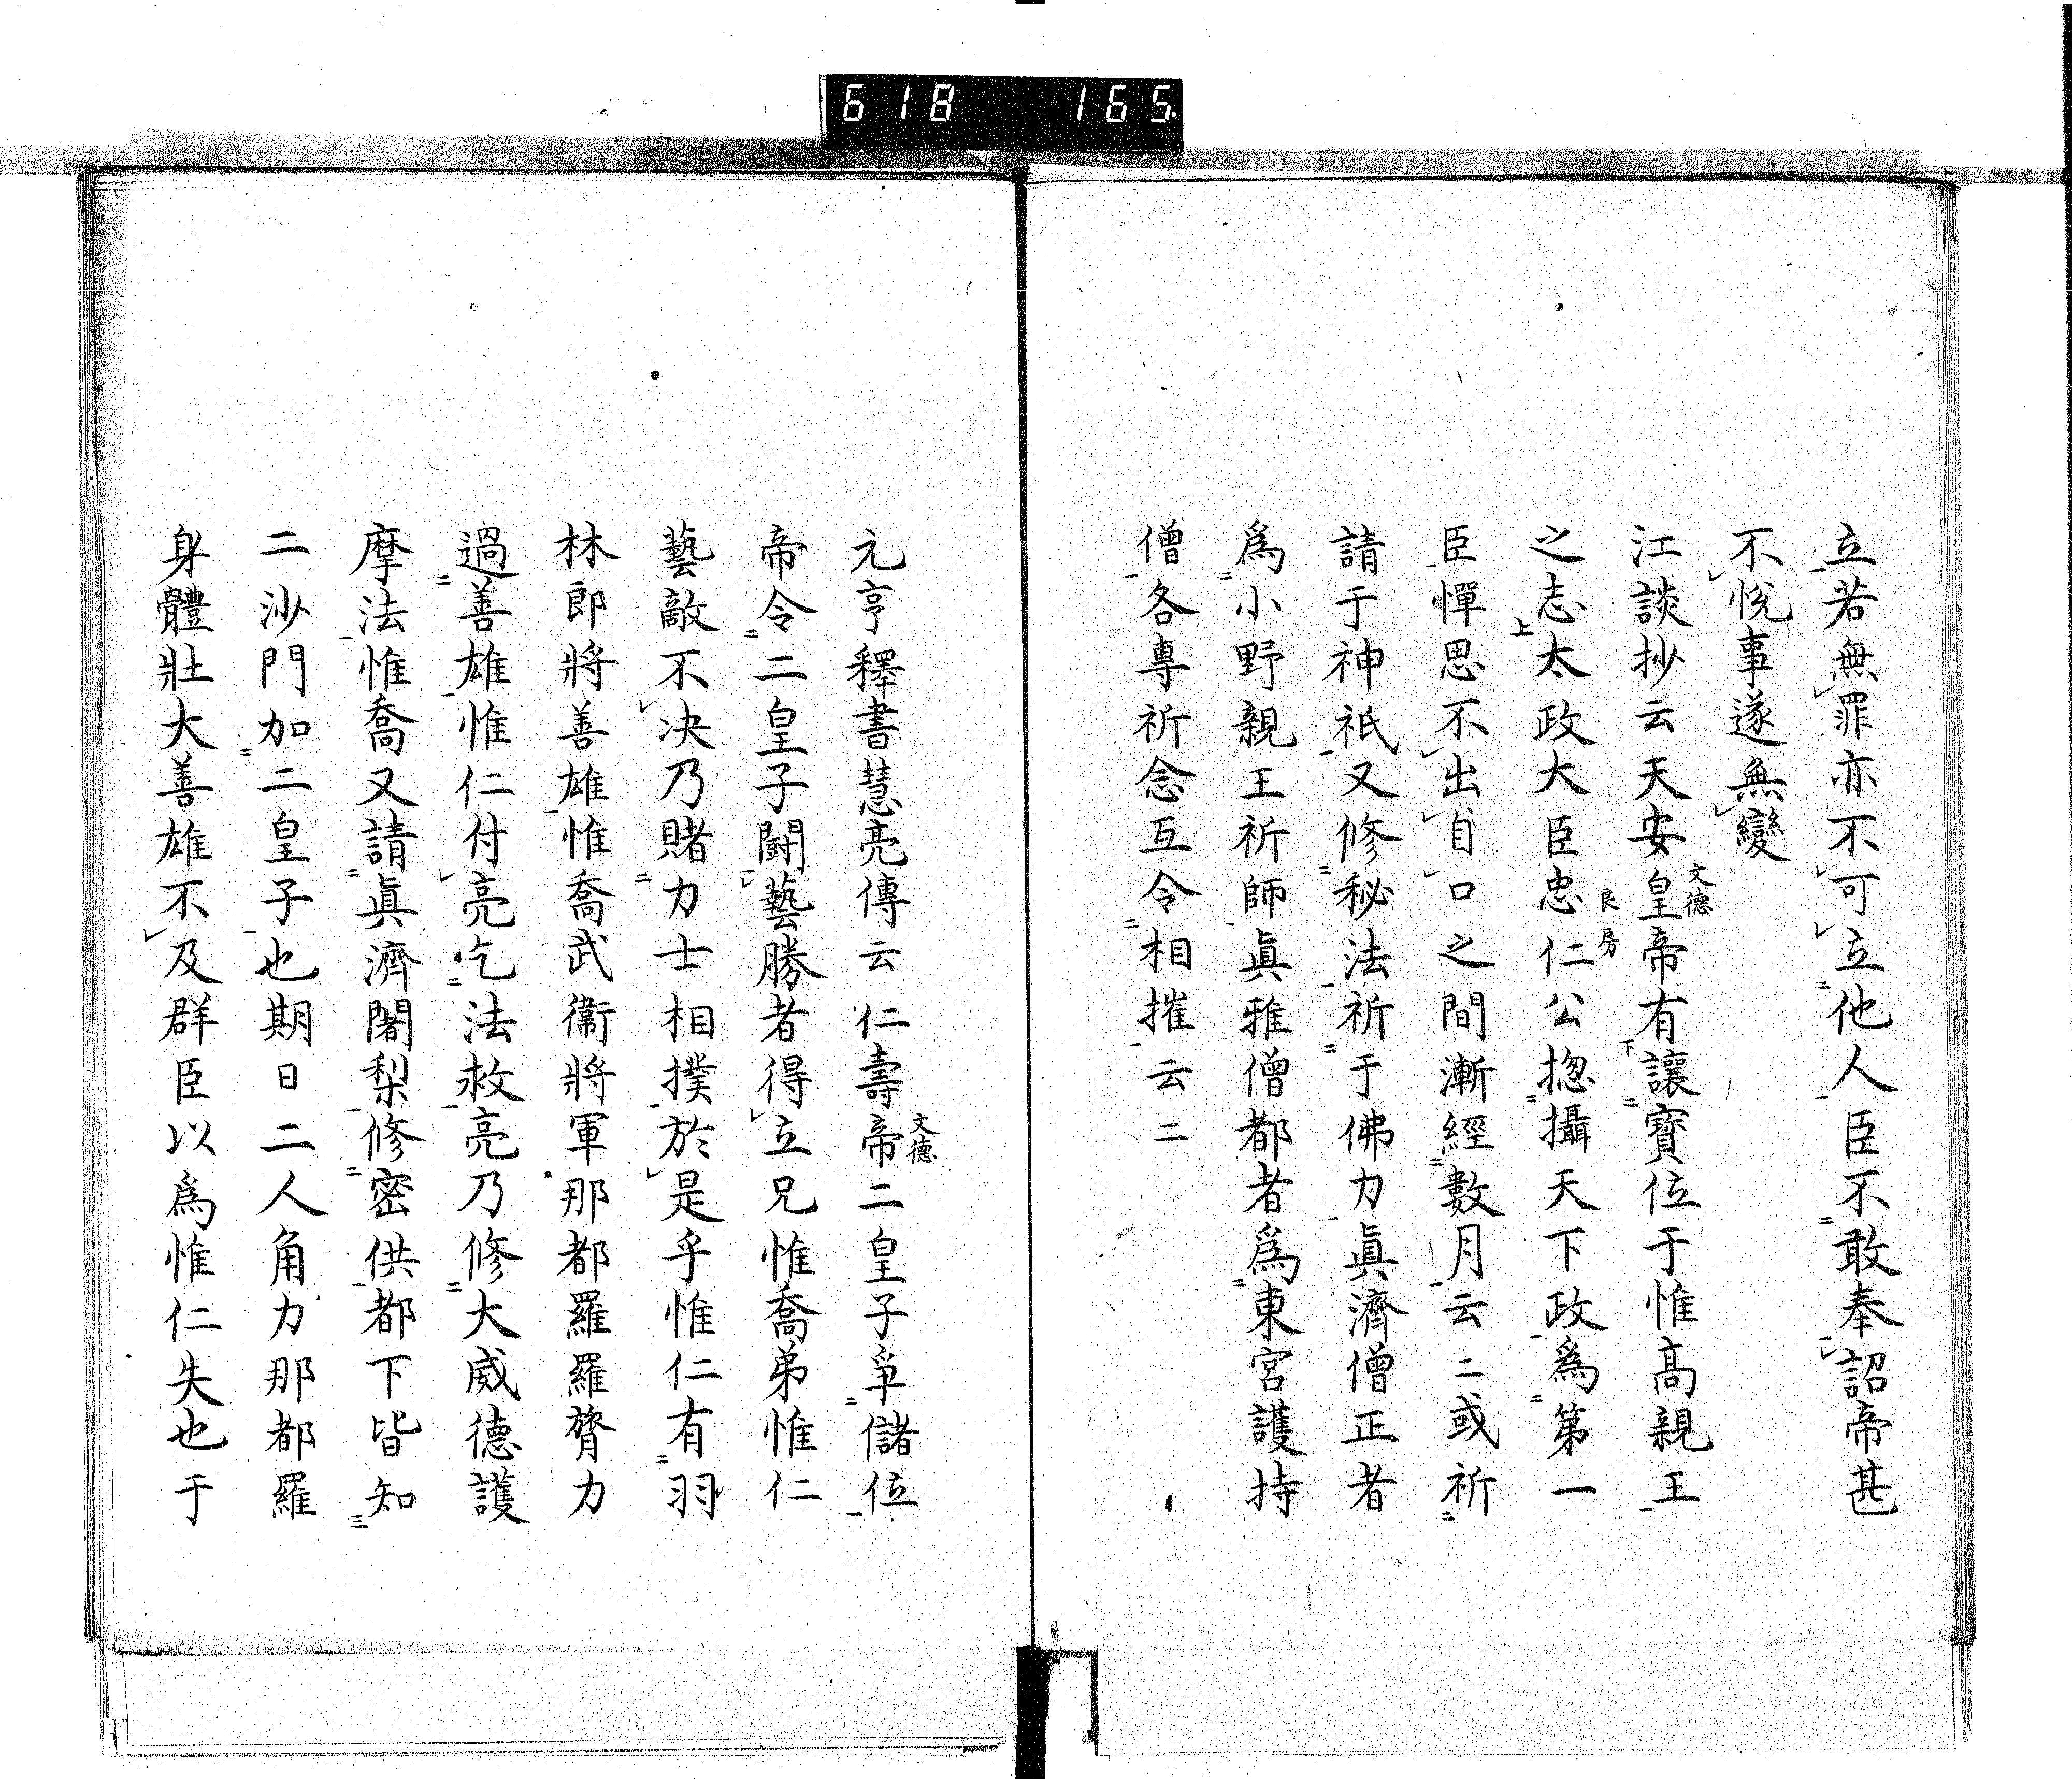 618 165
立若無罪亦不可立他人臣不敢奉詔帝甚
不悅事遂無變
江談抄云天安皇帝有讓寶位于惟高親王
文德
之志太政大臣忠仁公揔攝天下政爲第一
良房
臣憚思不出自口之間漸經數月云二或祈
請于神祇又修秘法祈于佛力眞濟僧正者
爲小野親王祈師眞雅僧都者爲東宮護持
僧各專祈念互令相摧云二
元亨釋書慧亮傳云仁壽帝二皇子爭儲位
文德
帝令二皇子鬪藝勝者得立兄惟喬弟惟仁
藝敵不决乃賭力士相撲於是乎惟仁有羽
林郎將善雄惟喬武衞將軍那都羅羅膂力
過善雄惟仁付亮乞法救亮乃修大威德護
摩法惟喬又請眞濟闍梨修密供都下皆知
二沙門加二皇子也期日二人角力那都羅
身體壯大善雄不及群臣以爲惟仁失也于